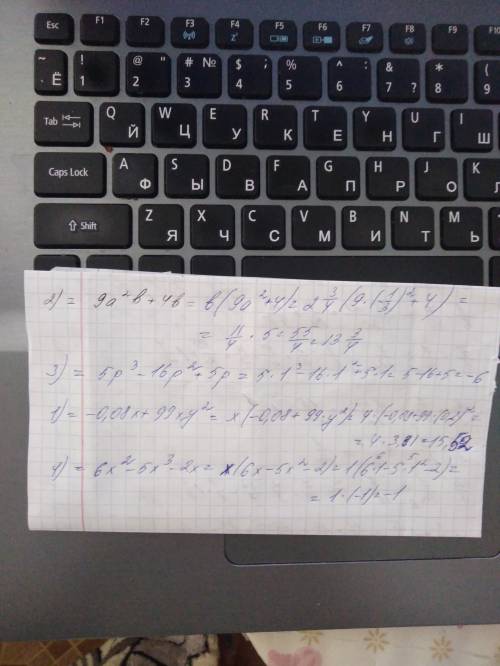 Esc F1 F2 F3 F4 F5 F6 F7 F8 F9 F10
~ Ё ! 1 @ " 2 # № 3 $ ; 4 % 5 ^ : 6 & 7 ? * 8 ( 9
Tab Q Й W Ц E У R К T Е Y Н U Г I Ш
Caps Lock A Ф S Ы D В F А G П H Р J О K Л
Shift Z Я X Ч C С V М B И N Т M Ь
2) = 9a²b+4b = b(9a²+4) = 2 3/4 (9·(-1/3)²+4) =
= 11/4 · 5 = 55/4 = 13 3/4
3) = 5p³-16p²+5p = 5·1³-16·1²+5·1 = 5-16+5 = -6
1) = -0,08x+99xy² = x(-0,08+99·y²) = 4·(-0,08+99·(0,2)²) =
= 4·3,88 = 15,52
4) = 6x²-5x³-2x = x(6x-5x²-2) = 1(6·1-5·1²-2) =
= 1·(-1) = -1